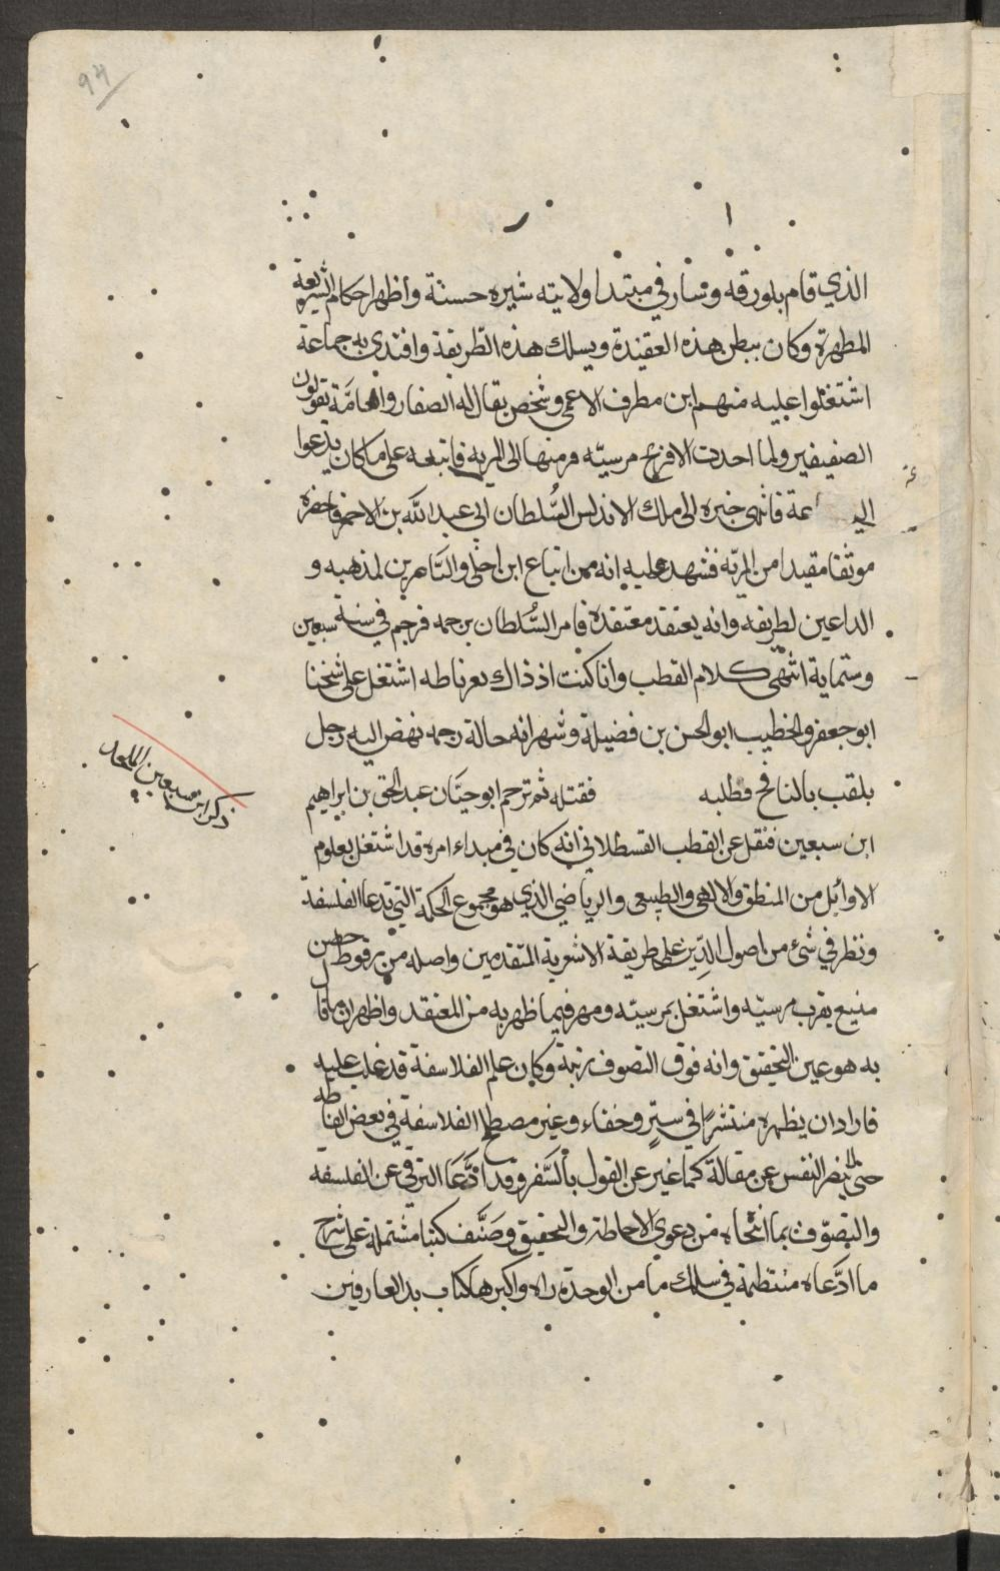 ٩٤
الذي قام بلورقه وسار في مبتدا ولايته سيره حسنة وأظهر احكام الشريعة
المطهرة وكان يبطن هذه العقيدة ويسلك هذه الطريقة واقتدى به جماعة
اشتغلوا عليه منهم ابن مطرف الاعمى وشخص يقال له الصفار والعامّة يقولون
الصفيفير ولما اخدت الافرنج مرسيّه فر منها الى المريه فاتبعه على ما كان يدعوا
اليه عة فانتهى خبره الى ملك الاندلس السُّلطان ابي عبد الله بن الاحمر فاحضره
موثقا مقيدا من المريّه فشهد عليه انه ممن اتباع ابن احلى والتاعرين لمذهبه و
الداعين لطريقه وانه يعتقد معتقده فامر السُّلطان برجمه فرجم في سنة سبعين
وستماية انتهى كلام القطب وانا كنت اذ ذاك بغرناطه اشتغل على شيخنا
ابو جعفر والخطيب ابو الحسن بن فضيلة وشهر انه حالة رجمه نهض اليه رجل
يلقب بالنافخ فطلبه فقتله ثم ترجم ابو حيّان عبد الحق بن ابراهيم
ذكر ابن سبعين الملحد
ابن سبعين فنقل عن القطب القسطلاني انه كان في مبداء امره قد اشتغل بعلوم
الاوائل من المنطق والالهي والطبيعى والرياضي الذي هو مجموع الحكمة التي تدعا الفلسفة
ونظر في شئ من اصول الدِّين على طريقة الاشعرية المتقدمين واصله من رقوطة حصن
منيع بقرب مرسيّه واشتغل بمرسيّه ومهر فيما ظهر به من المعتقد واظهر ان ما قال
به هو عين التحقيق وانه فوق التصوف رتبة وكان علم الفلاسفة قد غلب عليه
فاراد ان يظهره منتشرًا في سترٍ وخفاء وغير مصطلح الفلاسفة في بعض الفاظه
حتى لا ينفر النفس عن مقالة كما غير عن القول بالسَّفر وقد ادَّعا الترقي عن الفلسفه
والتصوّف بما انتحاه من دعوى الاحاطة والتحقيق وصَنَّف كتبا مشتملة على شرح
ما ادَّعاه منتظمة في سلك ما من الوحدة راه واكبرها كتاب بد العارفين